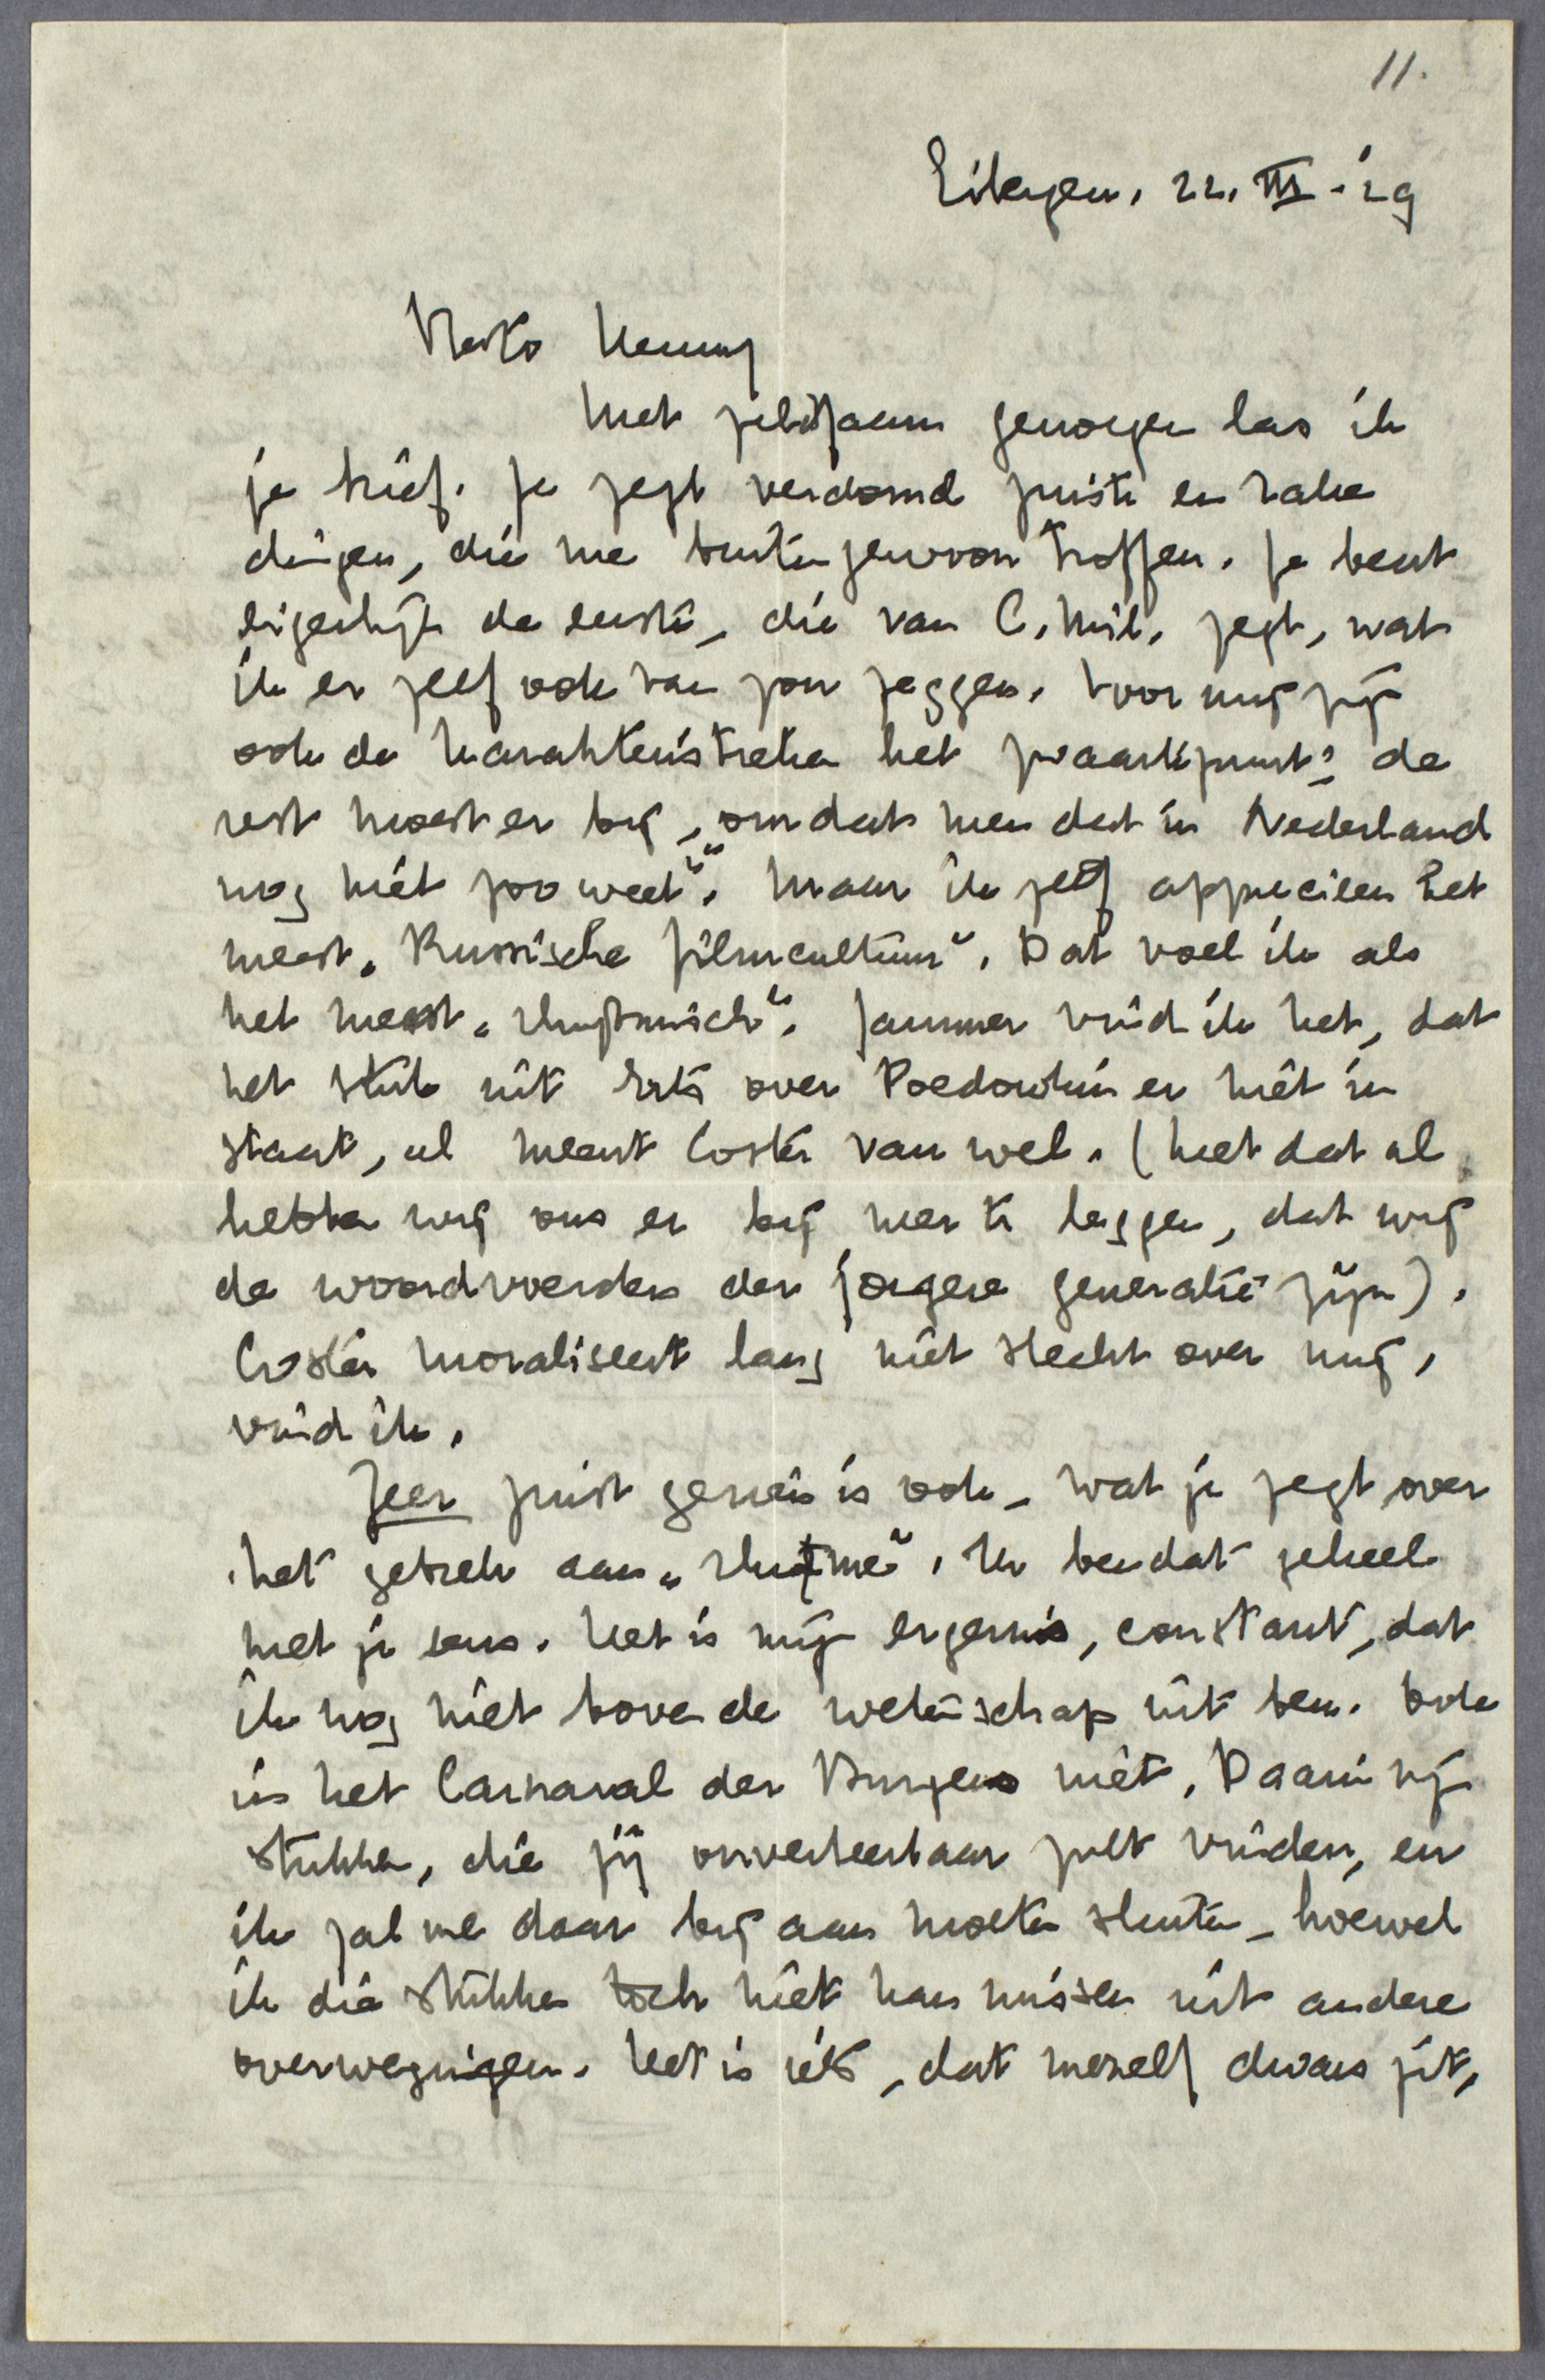 11.
Eibergen, 22. III. 29
Beste Henny
Met zeldzaam genoegen las ik
je brief. Je zegt verdomd juiste en rake
dingen, die me buitengewoon troffen. Je bent
eigenlijk de eerste, die van C. Mil. zegt, wat
ik er zelf ook van zou zeggen. Voor mij zijn
ook de karaktertrekken het zwaartepunt; de
rest moest er bij, „omdat men dat in Nederland
nog niet zoo weet". Maar ik zelf apprecieer het
meest „Russische filmcultuur". Dat voel ik als
het meest „rhythmisch". Jammer vind ik het, dat
het stuk uit Erts over Poedowkin er niet in
staat, al meent Coster van wel. (Met dat al
hebben wij ons er bij neer te leggen, dat wij
de woordvoerders der jongere generatie zijn).
Coster moraliseert lang niet slecht over mij,
vind ik.
Zeer juist gezien is ook, wat je zegt over
het gebrek aan „rhythme". Ik ben dat geheel
met je eens. Het is mijn ergernis, constant, dat
ik nog niet boven de wetenschap uit ben. Ook
in het Carnaval der Burgers niet. Daarin zijn
stukken, die jij onverteerbaar zult vinden, en
ik zal me daar bij aan moeten sluiten, hoewel
ik die stukken toch niet kan missen uit andere
overwegingen. Het is iets, dat mezelf dwars zit,